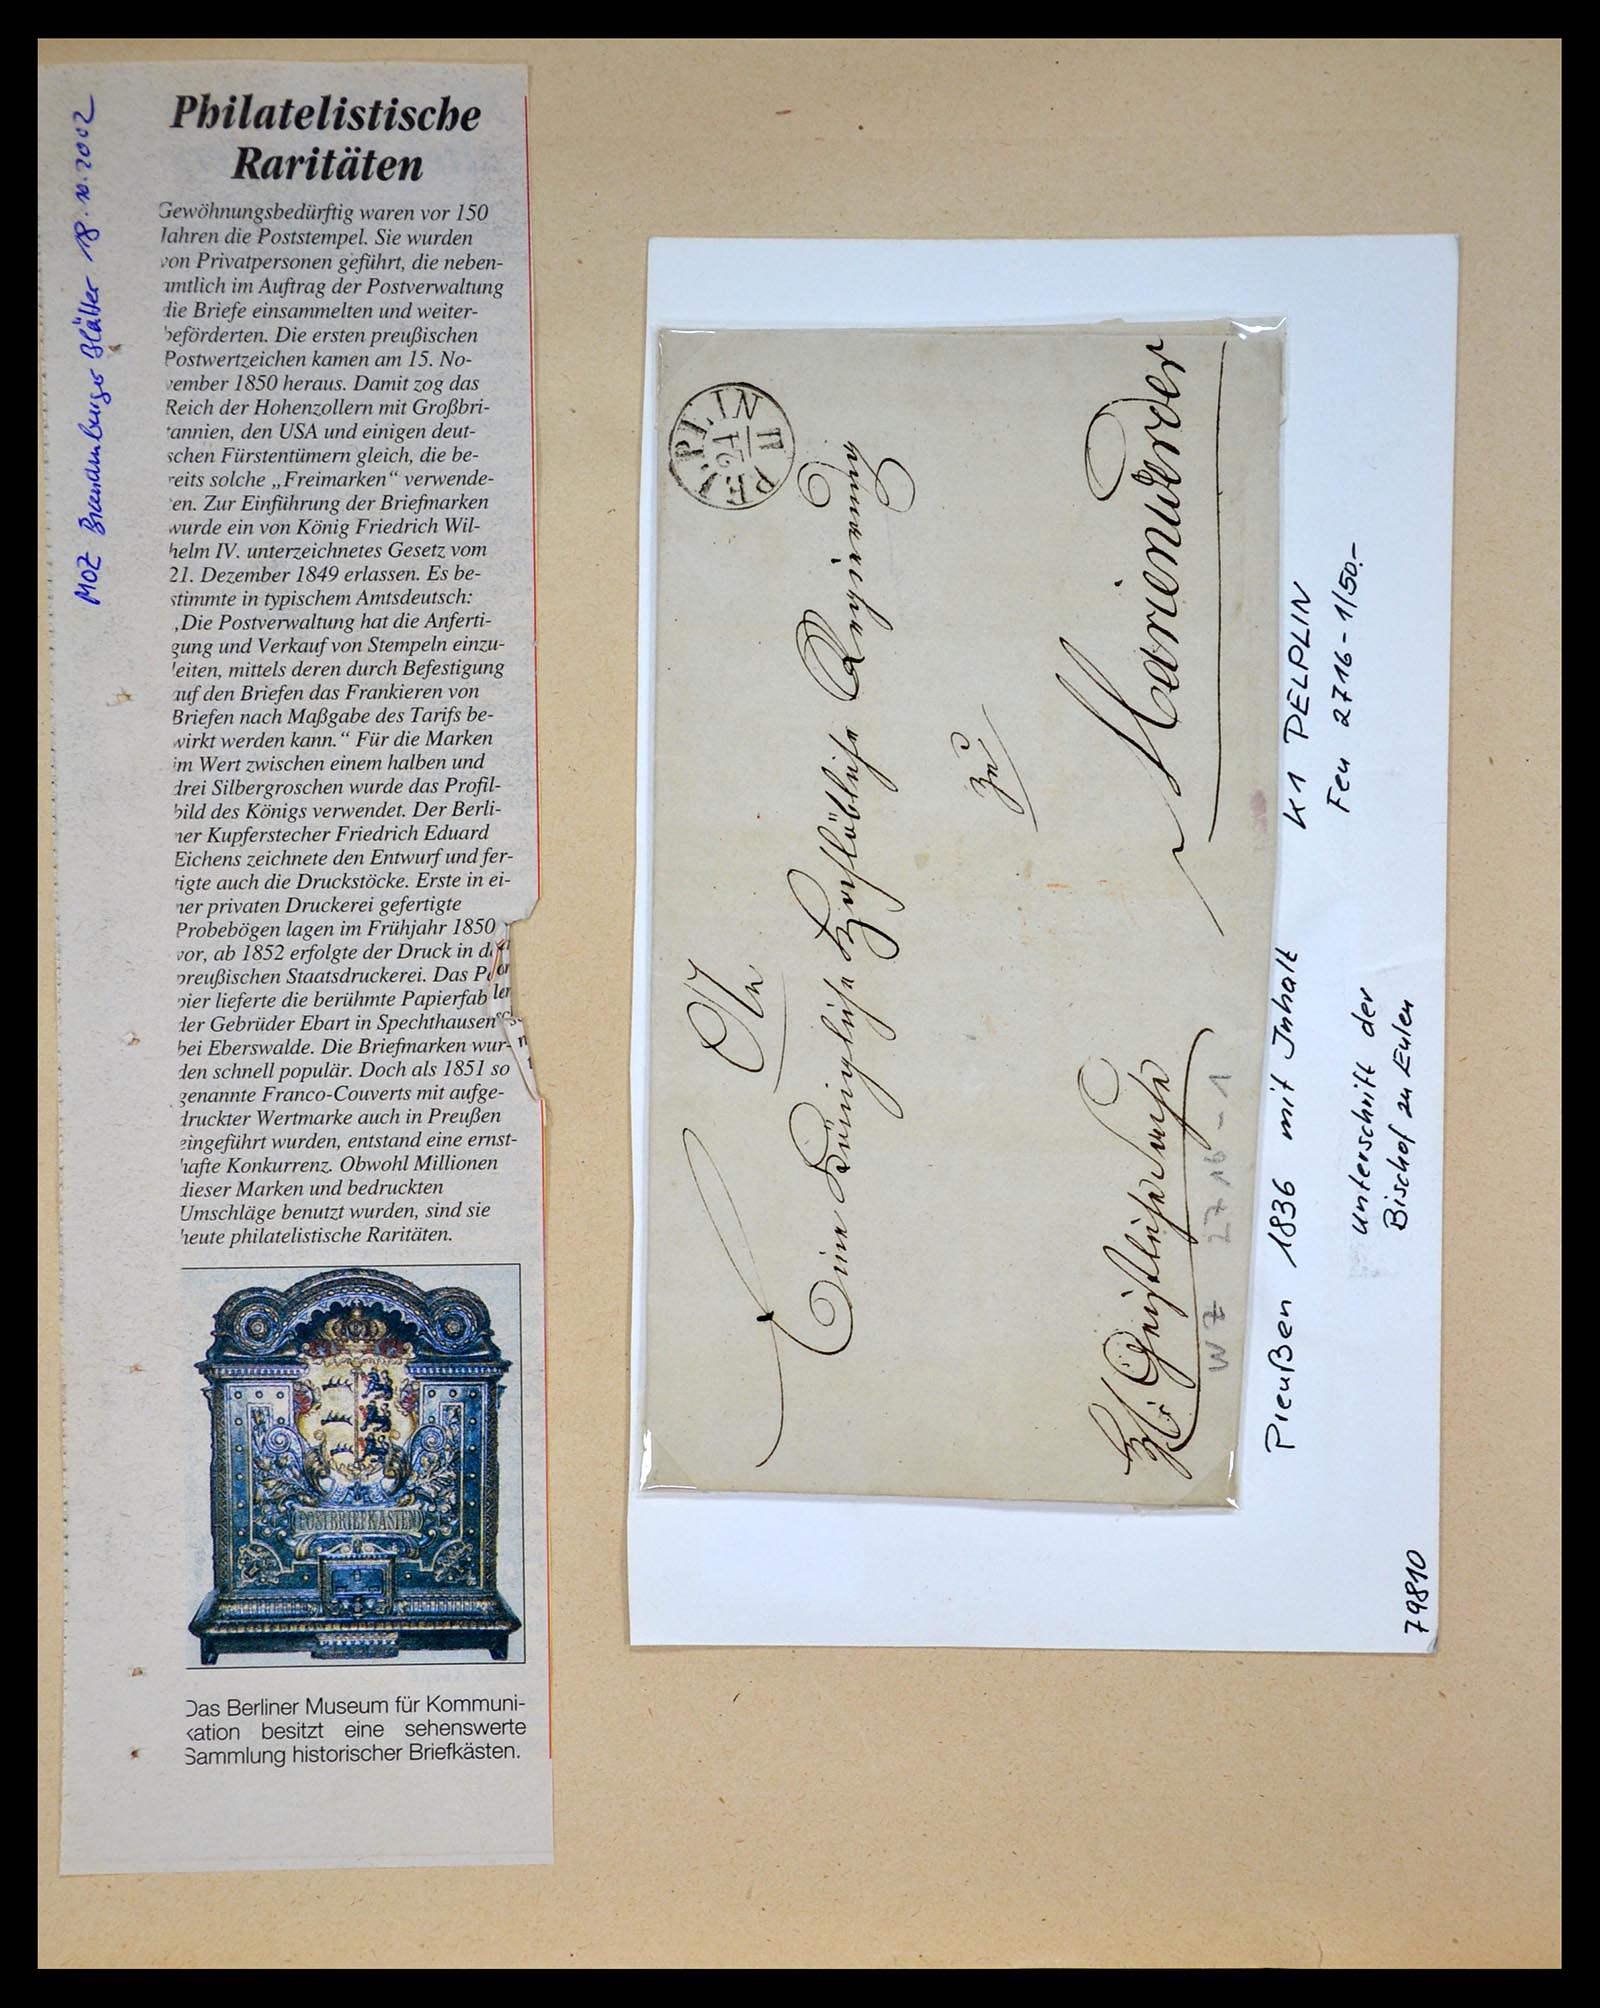 MOZ Brandenburger Blätter 18.10.2002
Philatelistische
Raritäten
Gewöhnungsbedürftig waren vor 150
Jahren die Poststempel. Sie wurden
von Privatpersonen geführt, die neben-
amtlich im Auftrag der Postverwaltung
die Briefe einsammelten und weiter-
beförderten. Die ersten preußischen
Postwertzeichen kamen am 15. No-
vember 1850 heraus. Damit zog das
Reich der Hohenzollern mit Großbri-
tannien, den USA und einigen deut-
schen Fürstentümern gleich, die be-
reits solche „Freimarken“ verwende-
en. Zur Einführung der Briefmarken
wurde ein von König Friedrich Wil-
helm IV. unterzeichnetes Gesetz vom
21. Dezember 1849 erlassen. Es be-
stimmte in typischem Amtsdeutsch:
„Die Postverwaltung hat die Anferti-
gung und Verkauf von Stempeln einzu-
leiten, mittels deren durch Befestigung
auf den Briefen das Frankieren von
Briefen nach Maßgabe des Tarifs be-
wirkt werden kann.“ Für die Marken
im Wert zwischen einem halben und
drei Silbergroschen wurde das Profil-
bild des Königs verwendet. Der Berli-
ner Kupferstecher Friedrich Eduard
Eichens zeichnete den Entwurf und fer-
tigte auch die Druckstöcke. Erste in ei-
ner privaten Druckerei gefertigte
Probebögen lagen im Frühjahr 1850
vor, ab 1852 erfolgte der Druck in d
preußischen Staatsdruckerei. Das P
pier lieferte die berühmte Papierfab
der Gebrüder Ebart in Spechthausen
bei Eberswalde. Die Briefmarken wur-
den schnell populär. Doch als 1851 so
genannte Franco-Couverts mit aufge-
druckter Wertmarke auch in Preußen
eingeführt wurden, entstand eine ernst-
hafte Konkurrenz. Obwohl Millionen
dieser Marken und bedruckten
Umschläge benutzt wurden, sind sie
heute philatelistische Raritäten.
POSTBRIEFKASTEN
Das Berliner Museum für Kommuni-
kation besitzt eine sehenswerte
Sammlung historischer Briefkästen.
PELPLIN
An
Eine Königliche Hochlöbliche Regierung
zu
Marienwerder
Geistliche Sache
WZ 2716-1
Preußen 1836 mit Inhalt K1 PELPLIN
Feu 2716-1/50.-
Unterschrift der
Bischof zu Eulen
79810